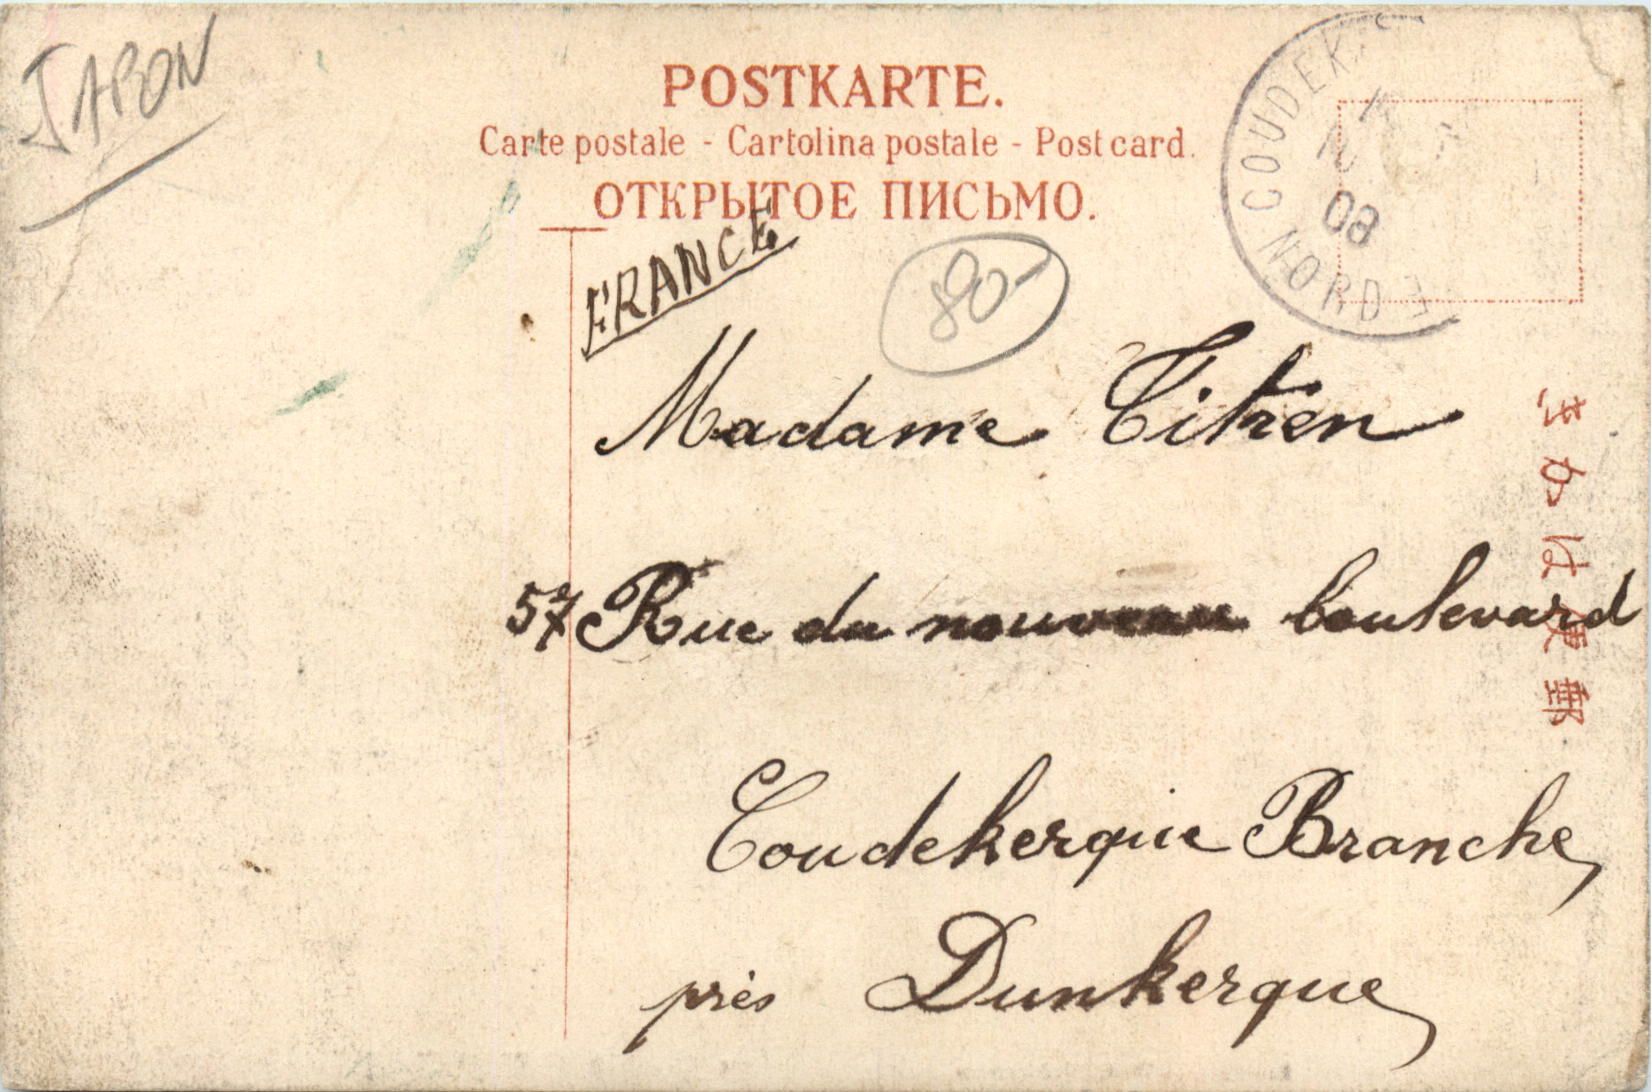 JAPON
POSTKARTE.
Carte postale - Cartolina postale - Post card.
ОТКРЫТОЕ ПИСЬМО.
COUDEK
08
NORD
FRANCE
Madame
57 Rue du nouveau boulevard
Coudekerque Branche,
près Dunkerque
郵便はかき